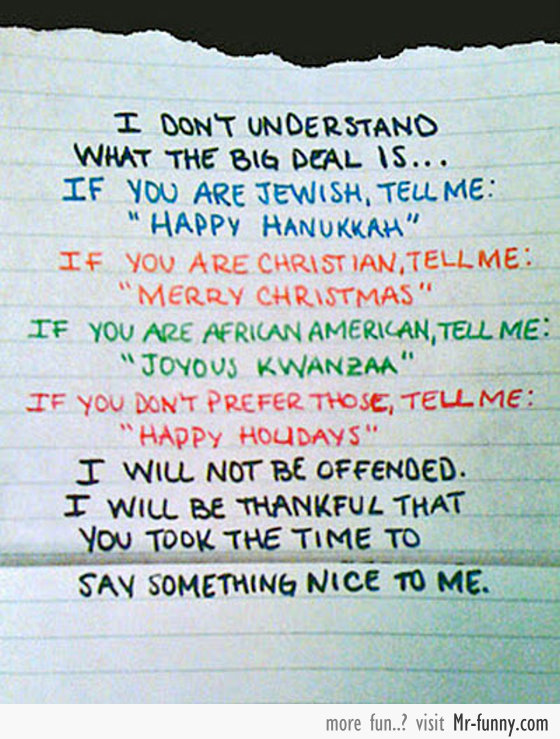 I DON'T UNDERSTAND
WHAT THE BIG DEAL IS...
IF YOU ARE JEWISH, TELL ME:
"HAPPY HANUKKAH"
IF YOU ARE CHRISTIAN, TELL ME:
"MERRY CHRISTMAS"
IF YOU ARE AFRICAN AMERICAN, TELL ME:
"JOYOUS KWANZAA"
IF YOU DON'T PREFER THOSE, TELL ME:
"HAPPY HOLIDAYS"
I WILL NOT BE OFFENDED.
I WILL BE THANKFUL THAT
YOU TOOK THE TIME TO
SAY SOMETHING NICE TO ME.
more fun..? visit Mr-funny.com